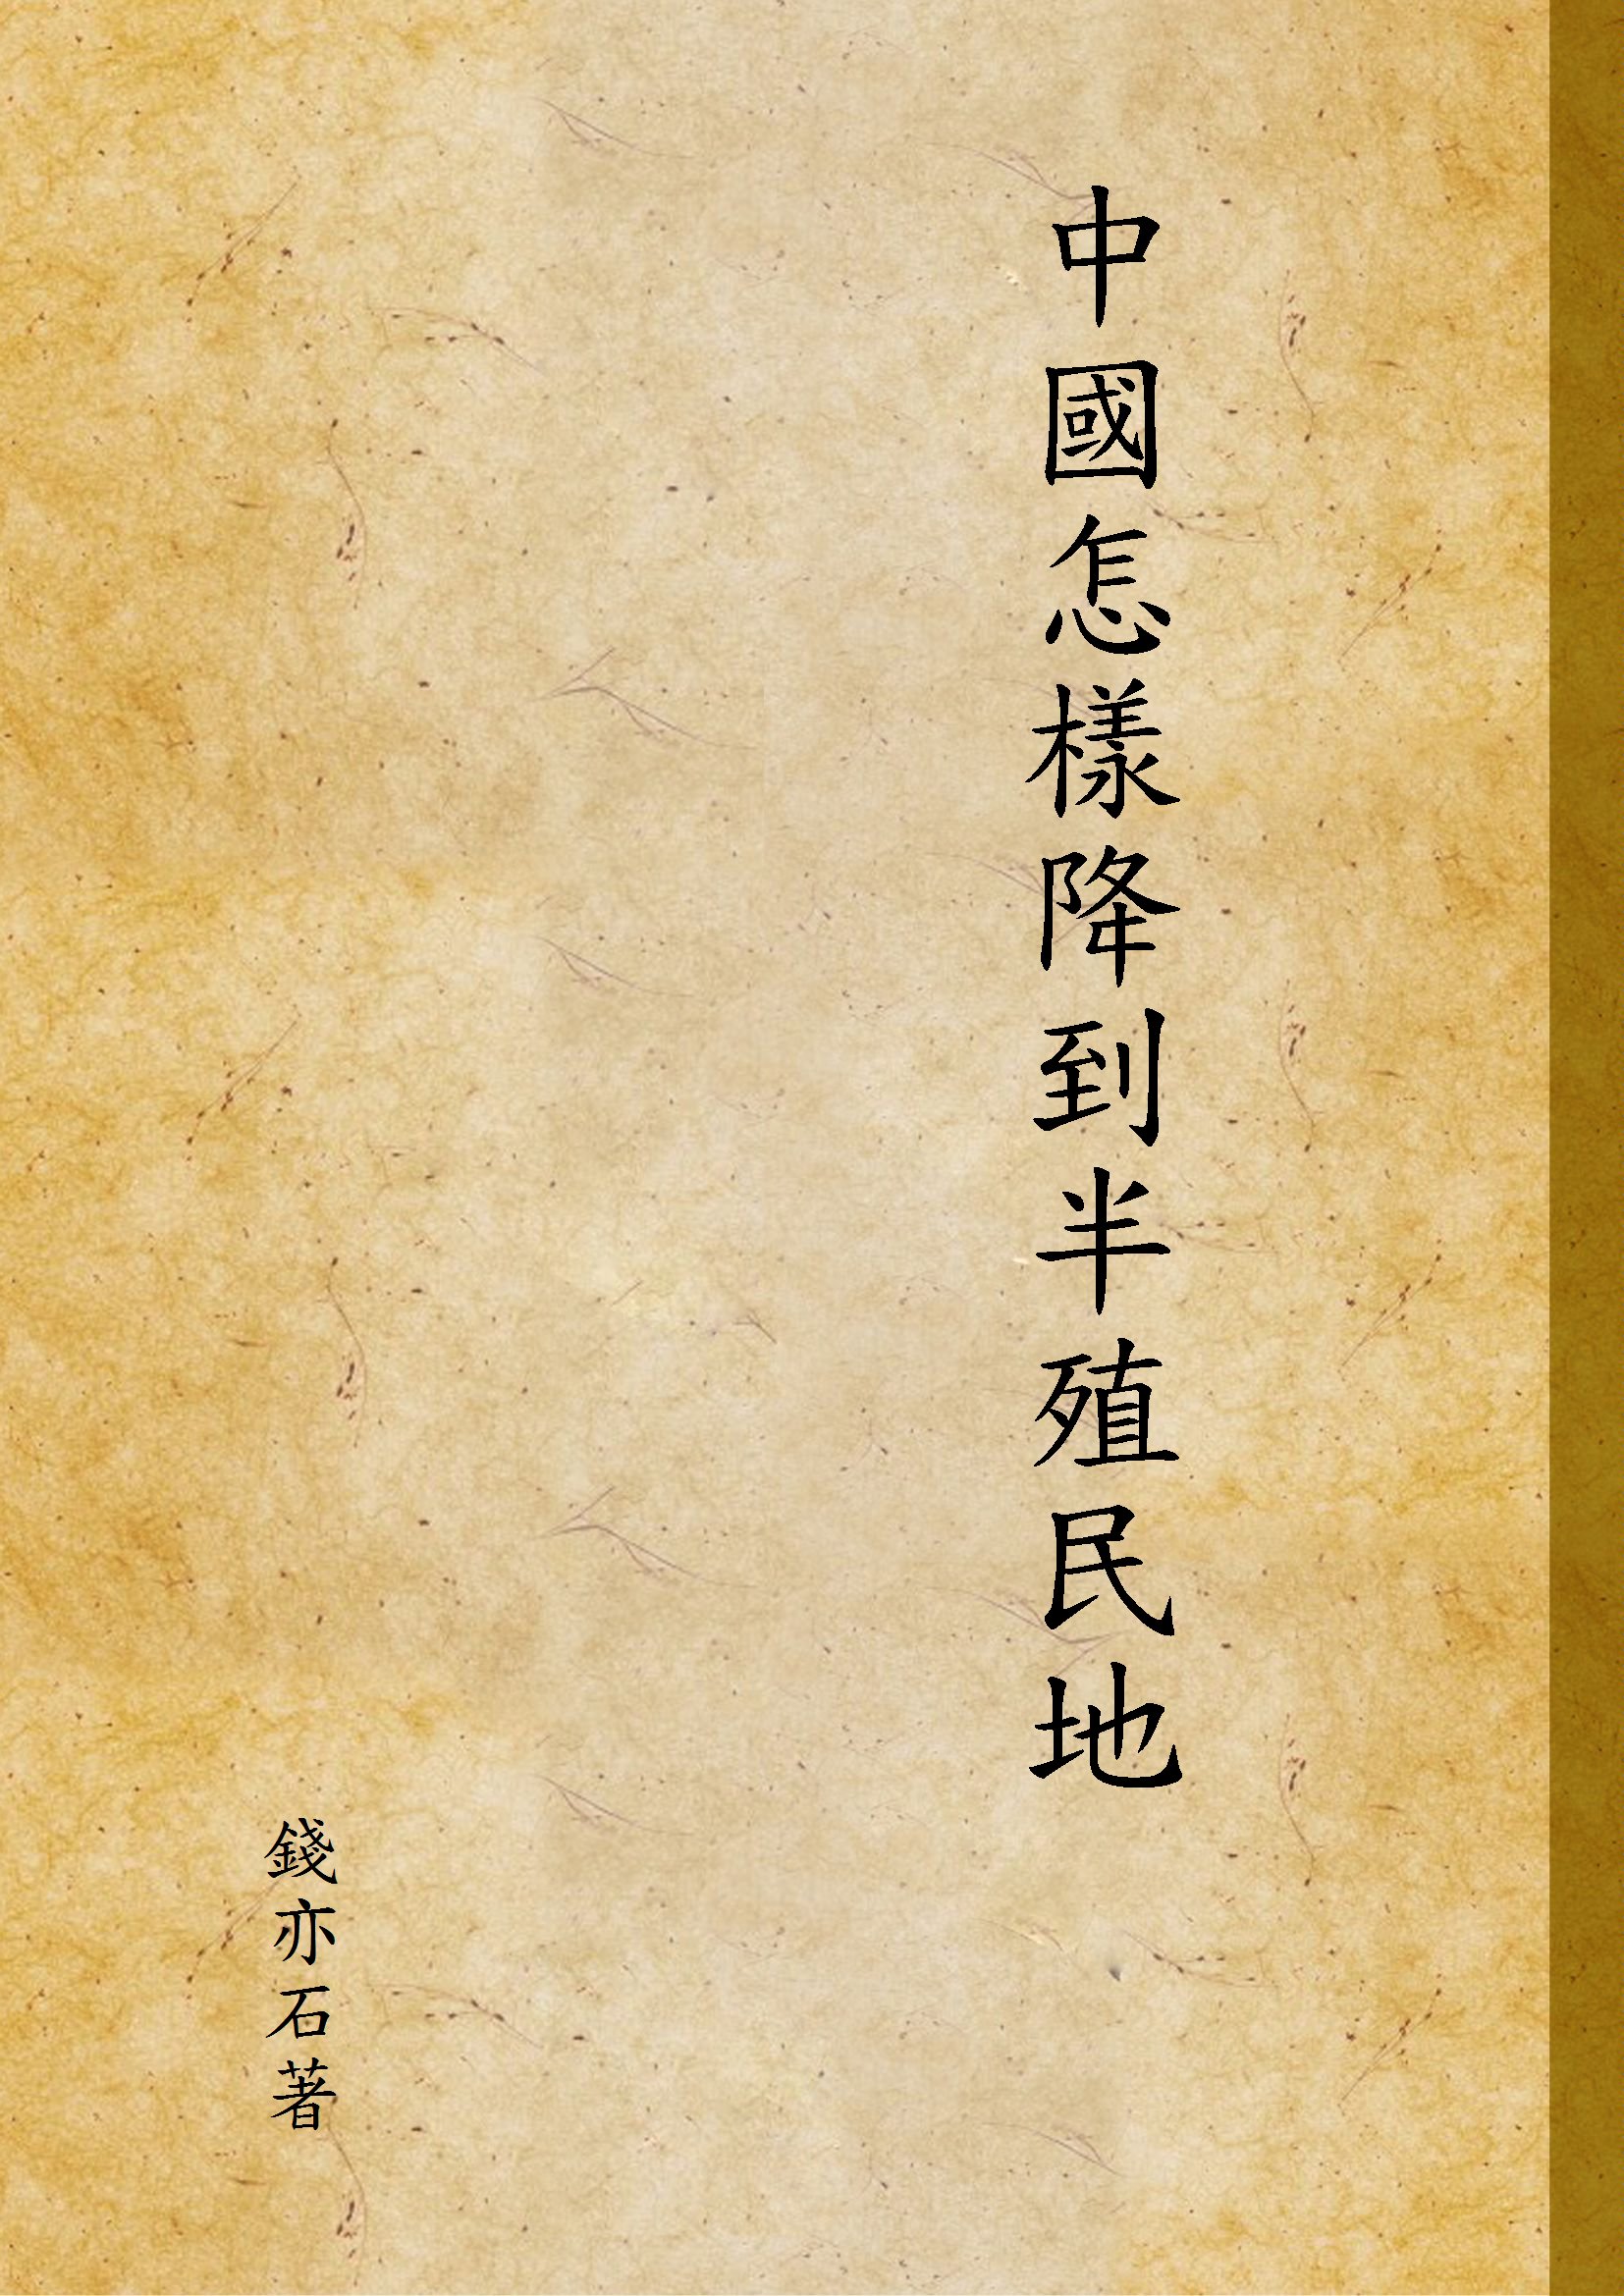 中國怎樣降到半殖民地
錢亦石著